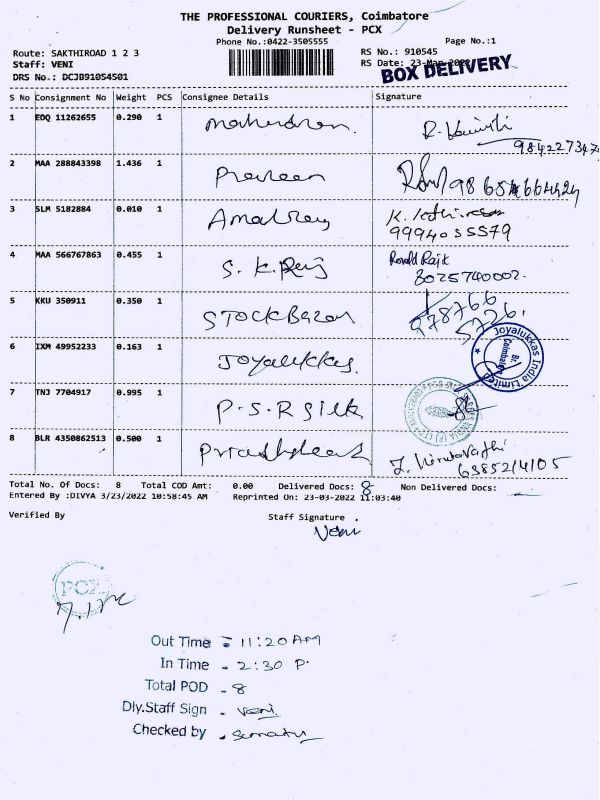 THE PROFESSIONAL COURIERS, Coimbatore
Delivery Runsheet - PCX
Phone No.:0422-3505555
Page No.:1
Route: SAKTHIROAD 1 2 3
RS No.: 910545
Staff: VENI
RS Date: 23-Mar-2022
BOX DELIVERY
DRS No.: DCJB91054501
S No Consignment No Weight PCS Consignee Details Signature
1 EDQ 11262655 0.290 1 Mahendran.
2 MAA 288843398 1.436 1 Praveen
3 SLM 5182884 0.010 1 Amalraj K. Kathiresan
9994055579
4 MAA 566767863 0.455 1 S.K.Raj Ronald Raj
8025740002.
5 KKU 350911 0.350 1 STOCKBazar 978766
5726.
6 IXM 49952233 0.163 1 Joyalukkas. Joyalukkas India Limited
Coimbatore
7 TNJ 7704917 0.995 1 P.S.R Silk
8 BLR 4350862513 0.500 1
6385214105
Total No. Of Docs: 8 Total COD Amt: 0.00 Delivered Docs: 8 Non Delivered Docs:
Entered By :DIVYA 3/23/2022 10:58:45 AM Reprinted On: 23-03-2022 11:03:40
Verified By Staff Signature .
Veni
PCX
Out Time = 11:20 AM
In Time - 2:30 P.
Total POD - 8
Dly.Staff Sign - Veni
Checked by -